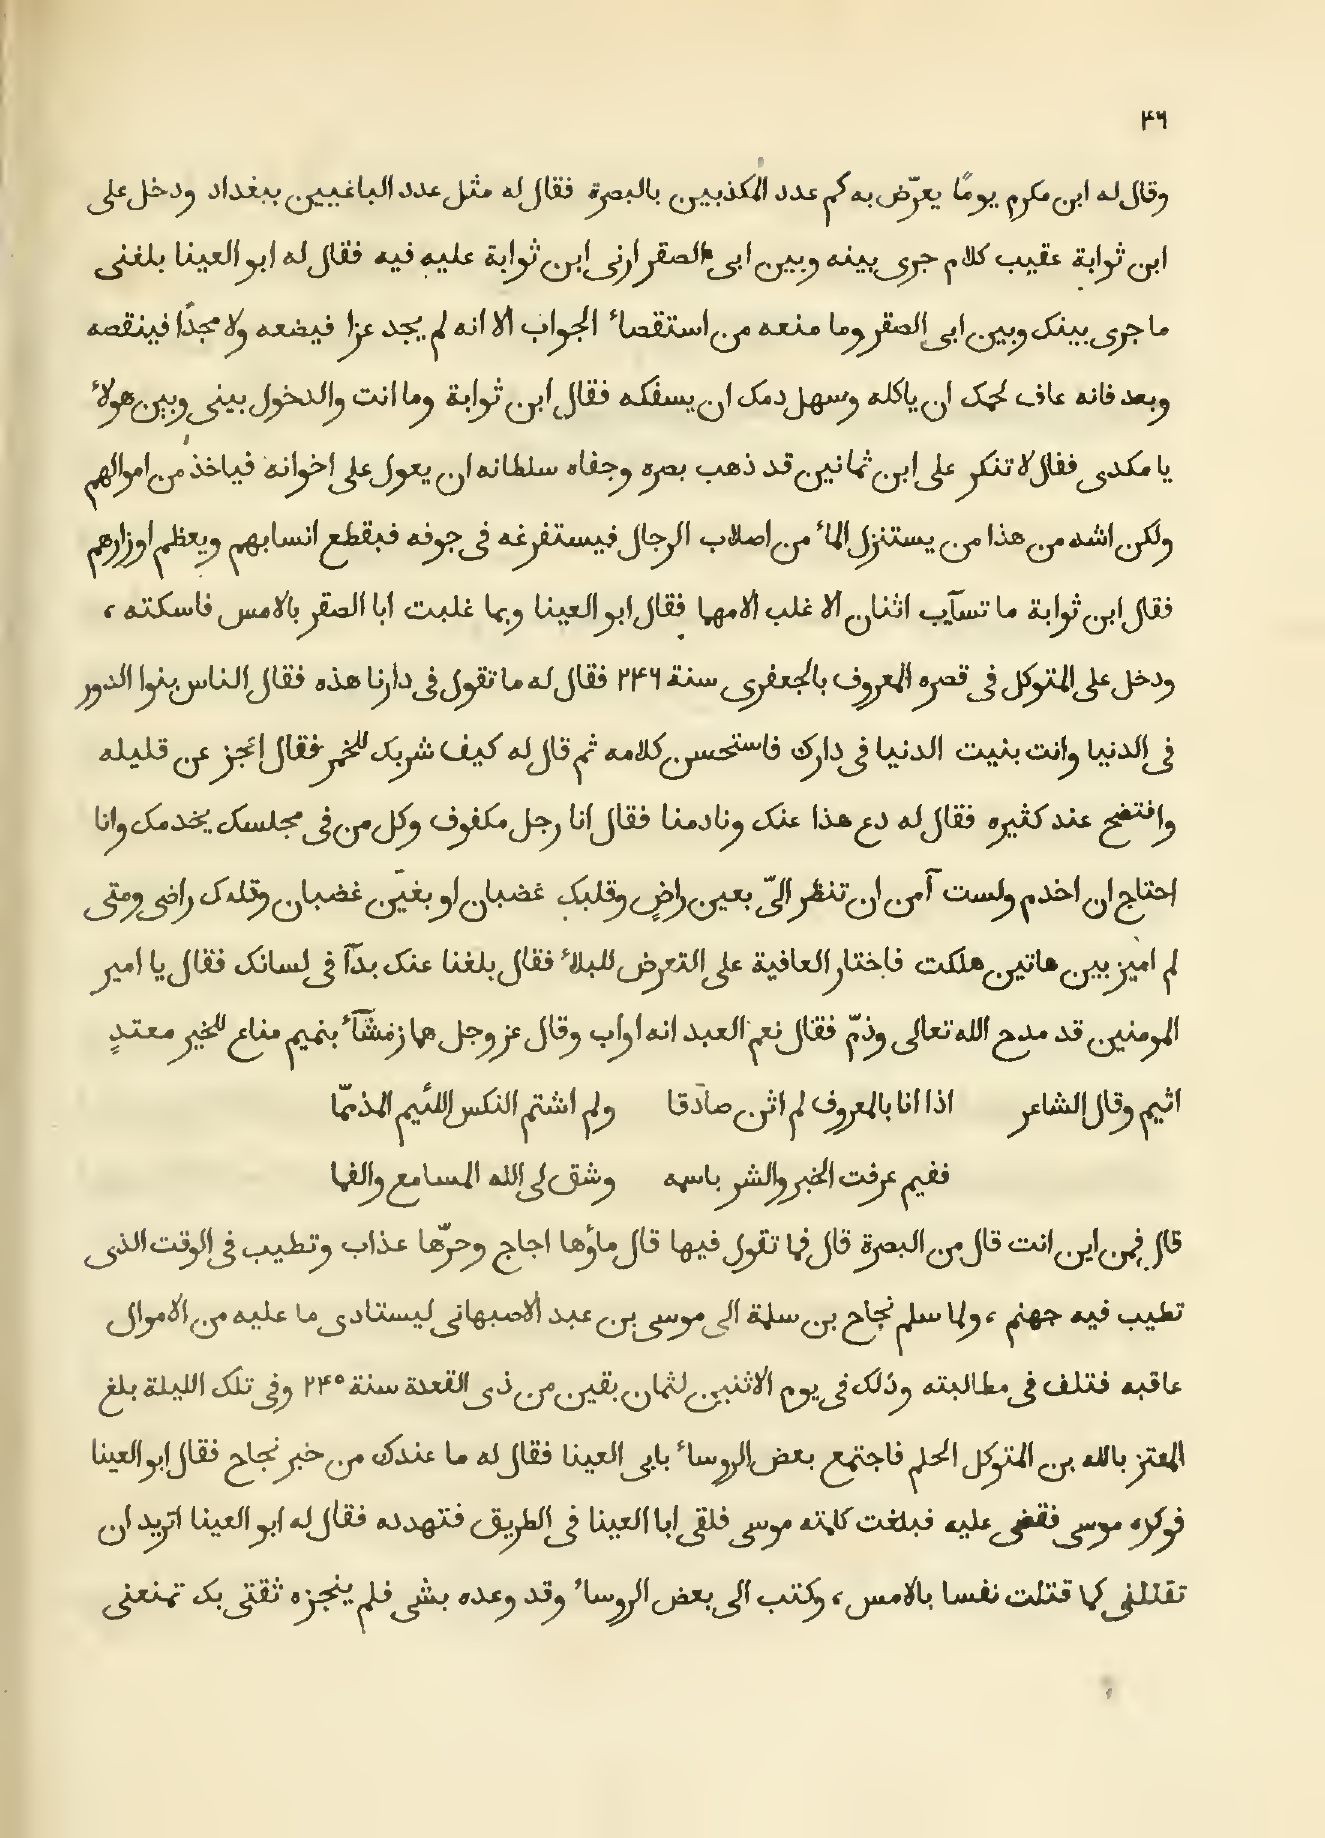 ٤٦
وقال له ابن مكرم يومًا يعرّض به كم عدد المكذبين بالبصرة فقال له مثل عدد الباغيين ببغداد ودخل على
ابن ثوابة عقيب كلام جرى بينه وبين ابى الصقر ارنى ابن ثوابة عليه فيه فقال له ابو العينا بلغنى
ما جرى بينك وبين ابى الصقر وما منعه من استقصاء الجواب الا انه لم يجد عزا فيضعه ولا مجدًا فينقصه
وبعد فانه عاف لحمك ان ياكله وسهل دمك ان يسفكه فقال ابن ثوابة وما انت والدخول بينى وبين هولاء
يا مكدى فقال لا تنكر على ابن ثمانين قد ذهب بصره وجفاه سلطانه ان يعول على اخوانه فياخذ من اموالهم
ولكن اشد من هذا من يستنزل الماء من اصلاب الرجال فيستفرغه فى جوفه فيقطع انسابهم ويعظم اوزارهم
فقال ابن ثوابة ما تسآيب اثنان الا غلب الامهما فقال ابو العينا وبما غلبت ابا الصقر بالامس فاسكته ،
ودخل على المتوكل فى قصره المعروف بالجعفرى سنة ٢٤٦ فقال له ما تقول فى دارنا هذه فقال الناس بنوا الدور
فى الدنيا وانت بنيت الدنيا فى دارك فاستحسن كلامه ثم قال له كيف شربك للخمر فقال اعجز عن قليله
وافتضح عند كثيره فقال له دع هذا عنك ونادمنا فقال انا رجل مكفوف وكل من فى مجلسك يخدمك وانا
احتاج ان اخدم ولست آمن ان تنظر الىّ بعين راضٍ وقلبك غضبان او بغيّن غضبان وقلبك راضى ومتى
لم اميز بين هاتين هلكت فاختار العافية على التعرض للبلاء فقال بلغنا عنك بدآ فى لسانك فقال يا امير
المومنين قد مدح الله تعالى وذمّ فقال نعم العبد انه اواب وقال عز وجل هماز مشّآء بنميم مناع للخير معتدٍ
اثيم وقال الشاعر اذا انا بالمعروف لم اثن صادقا ولم اشتم النكس اللئيم المذمّما
ففيم عرفت الخير والشر باسمه وشق لى الله المسامع والفما
قال فمن اين انت قال من البصرة قال فما تقول فيها قال ماؤها اجاج وحرّها عذاب وتطيب فى الوقت الذى
تطيب فيه جهنم ، ولما سلم نجاح بن سلمة الى موسى بن عبد الاصبهانى ليستادى ما عليه من الاموال
عاقبه فتلف فى مطالبته وذلك فى يوم الاثنين لثمان بقين من ذى القعدة سنة ٢٤٥ وفى تلك الليلة بلغ
المعتز بالله بن المتوكل الحلم فاجتمع بعض الروساء بابى العينا فقال له ما عندك من خبر نجاح فقال ابو العينا
فوكزه موسى فقضى عليه فبلغت كلمته موسى فلقى ابا العينا فى الطريق فتهدده فقال له ابو العينا اتريد ان
تقتلنى كما قتلت نفسا بالامس ، وكتب الى بعض الروساء وقد وعده بشى فلم ينجزه ثقتى بك تمنعنى